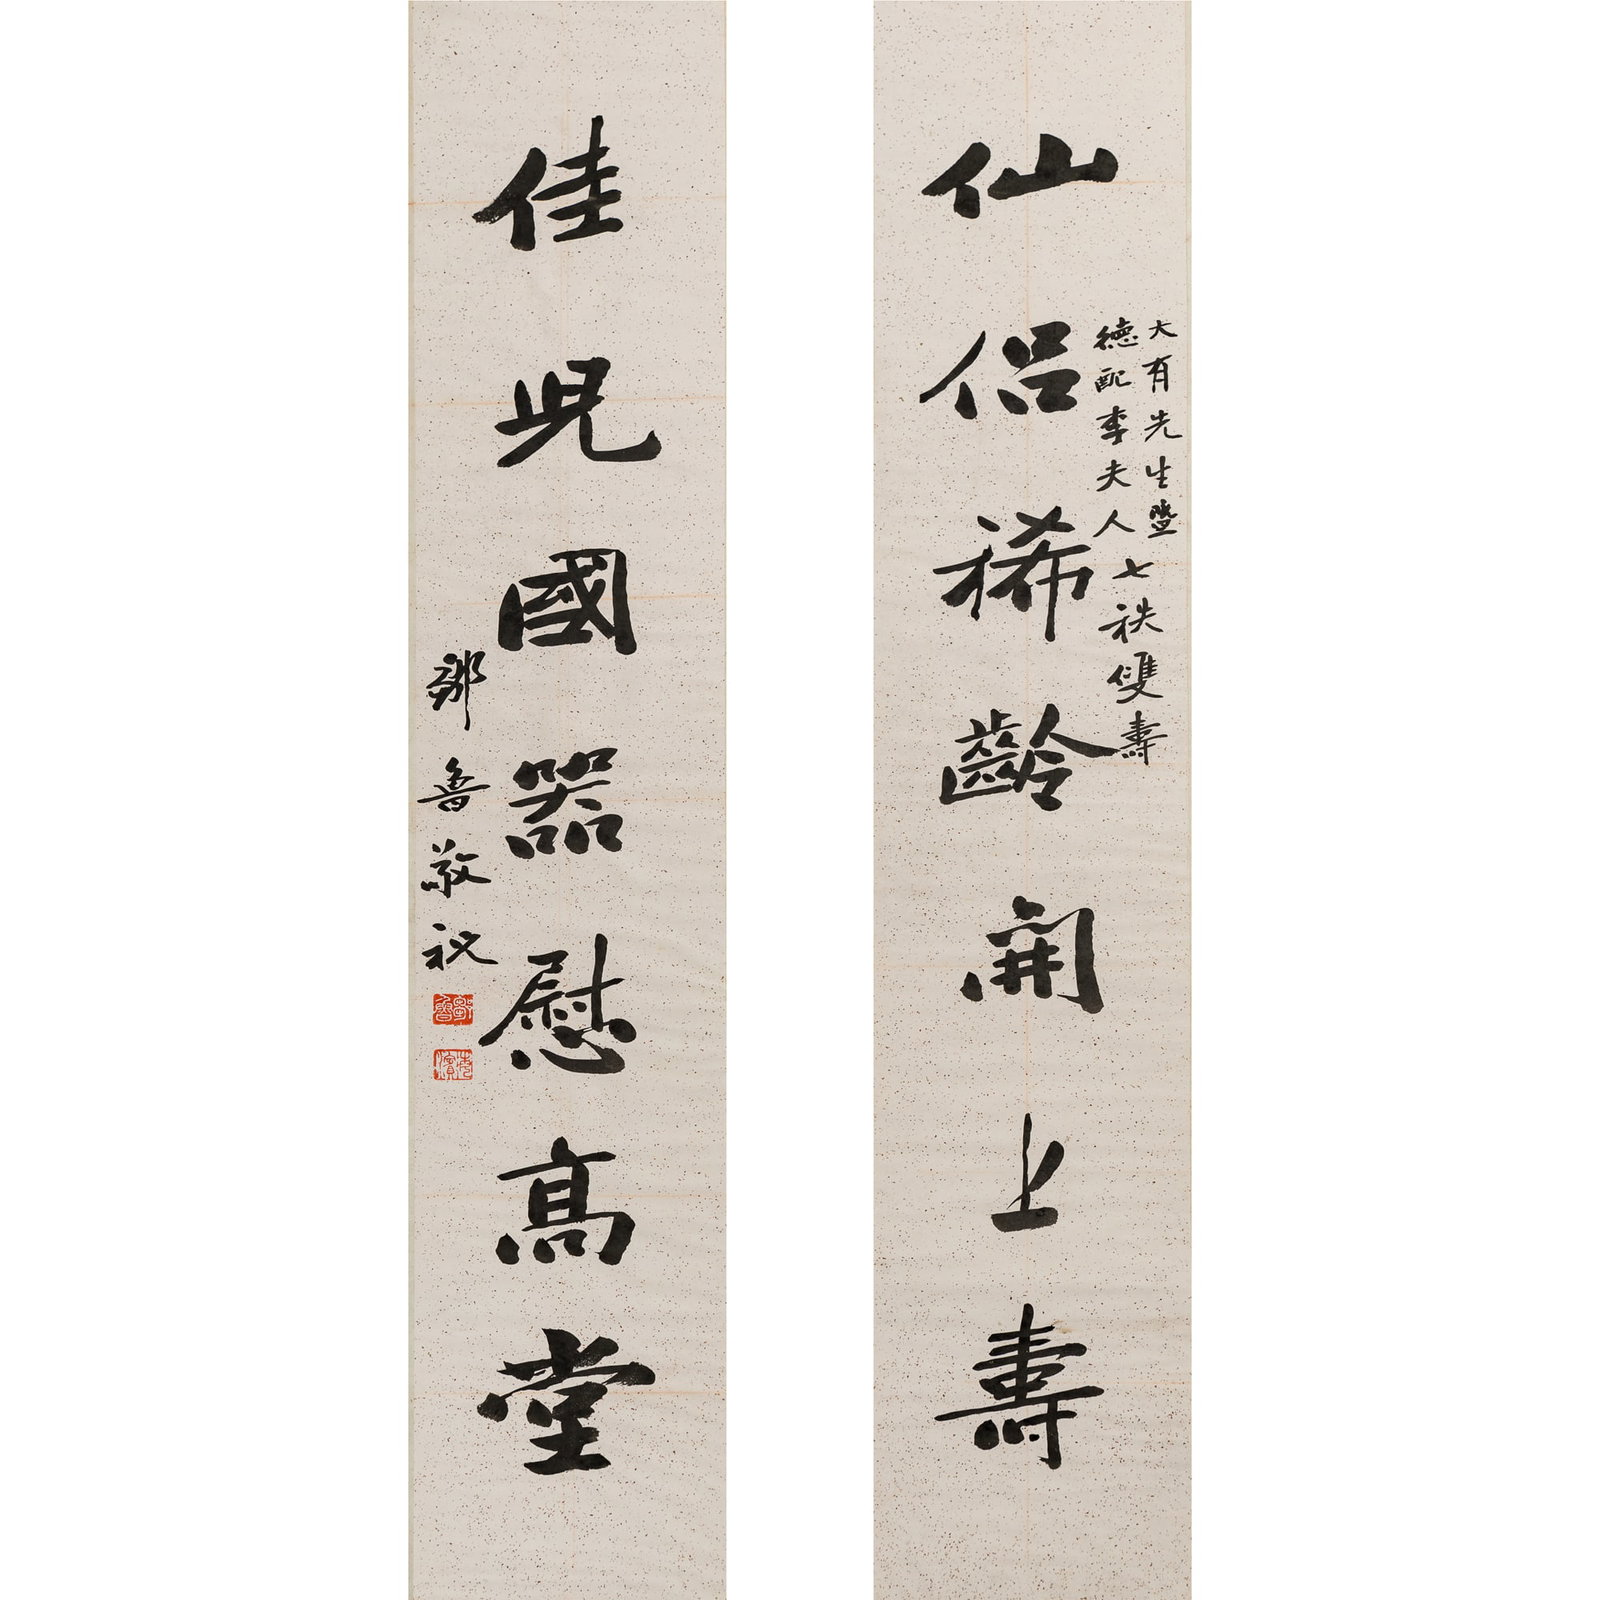 仙侶稀齡開上壽
大有先生暨
德配李夫人
七秩雙壽
佳児國器慰高堂
鄒魯敬祝
鄒魯
海濱